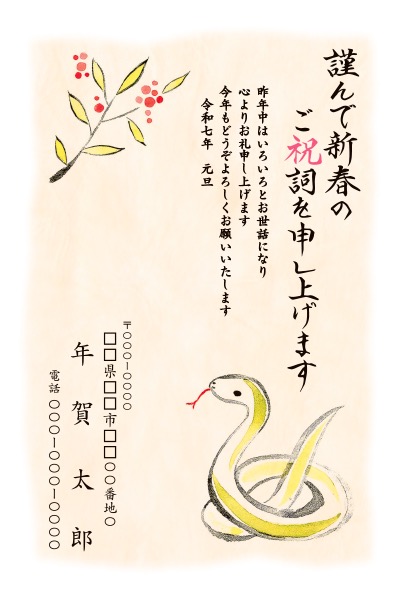 謹んで新春の
ご祝詞を申し上げます
昨年中はいろいろとお世話になり
心よりお礼申し上げます
今年もどうぞよろしくお願いいたします
令和七年　元旦
〒〇〇〇-〇〇〇〇
□□県□□市□□〇〇番地〇
年賀太郎
電話 〇〇〇-〇〇〇-〇〇〇〇